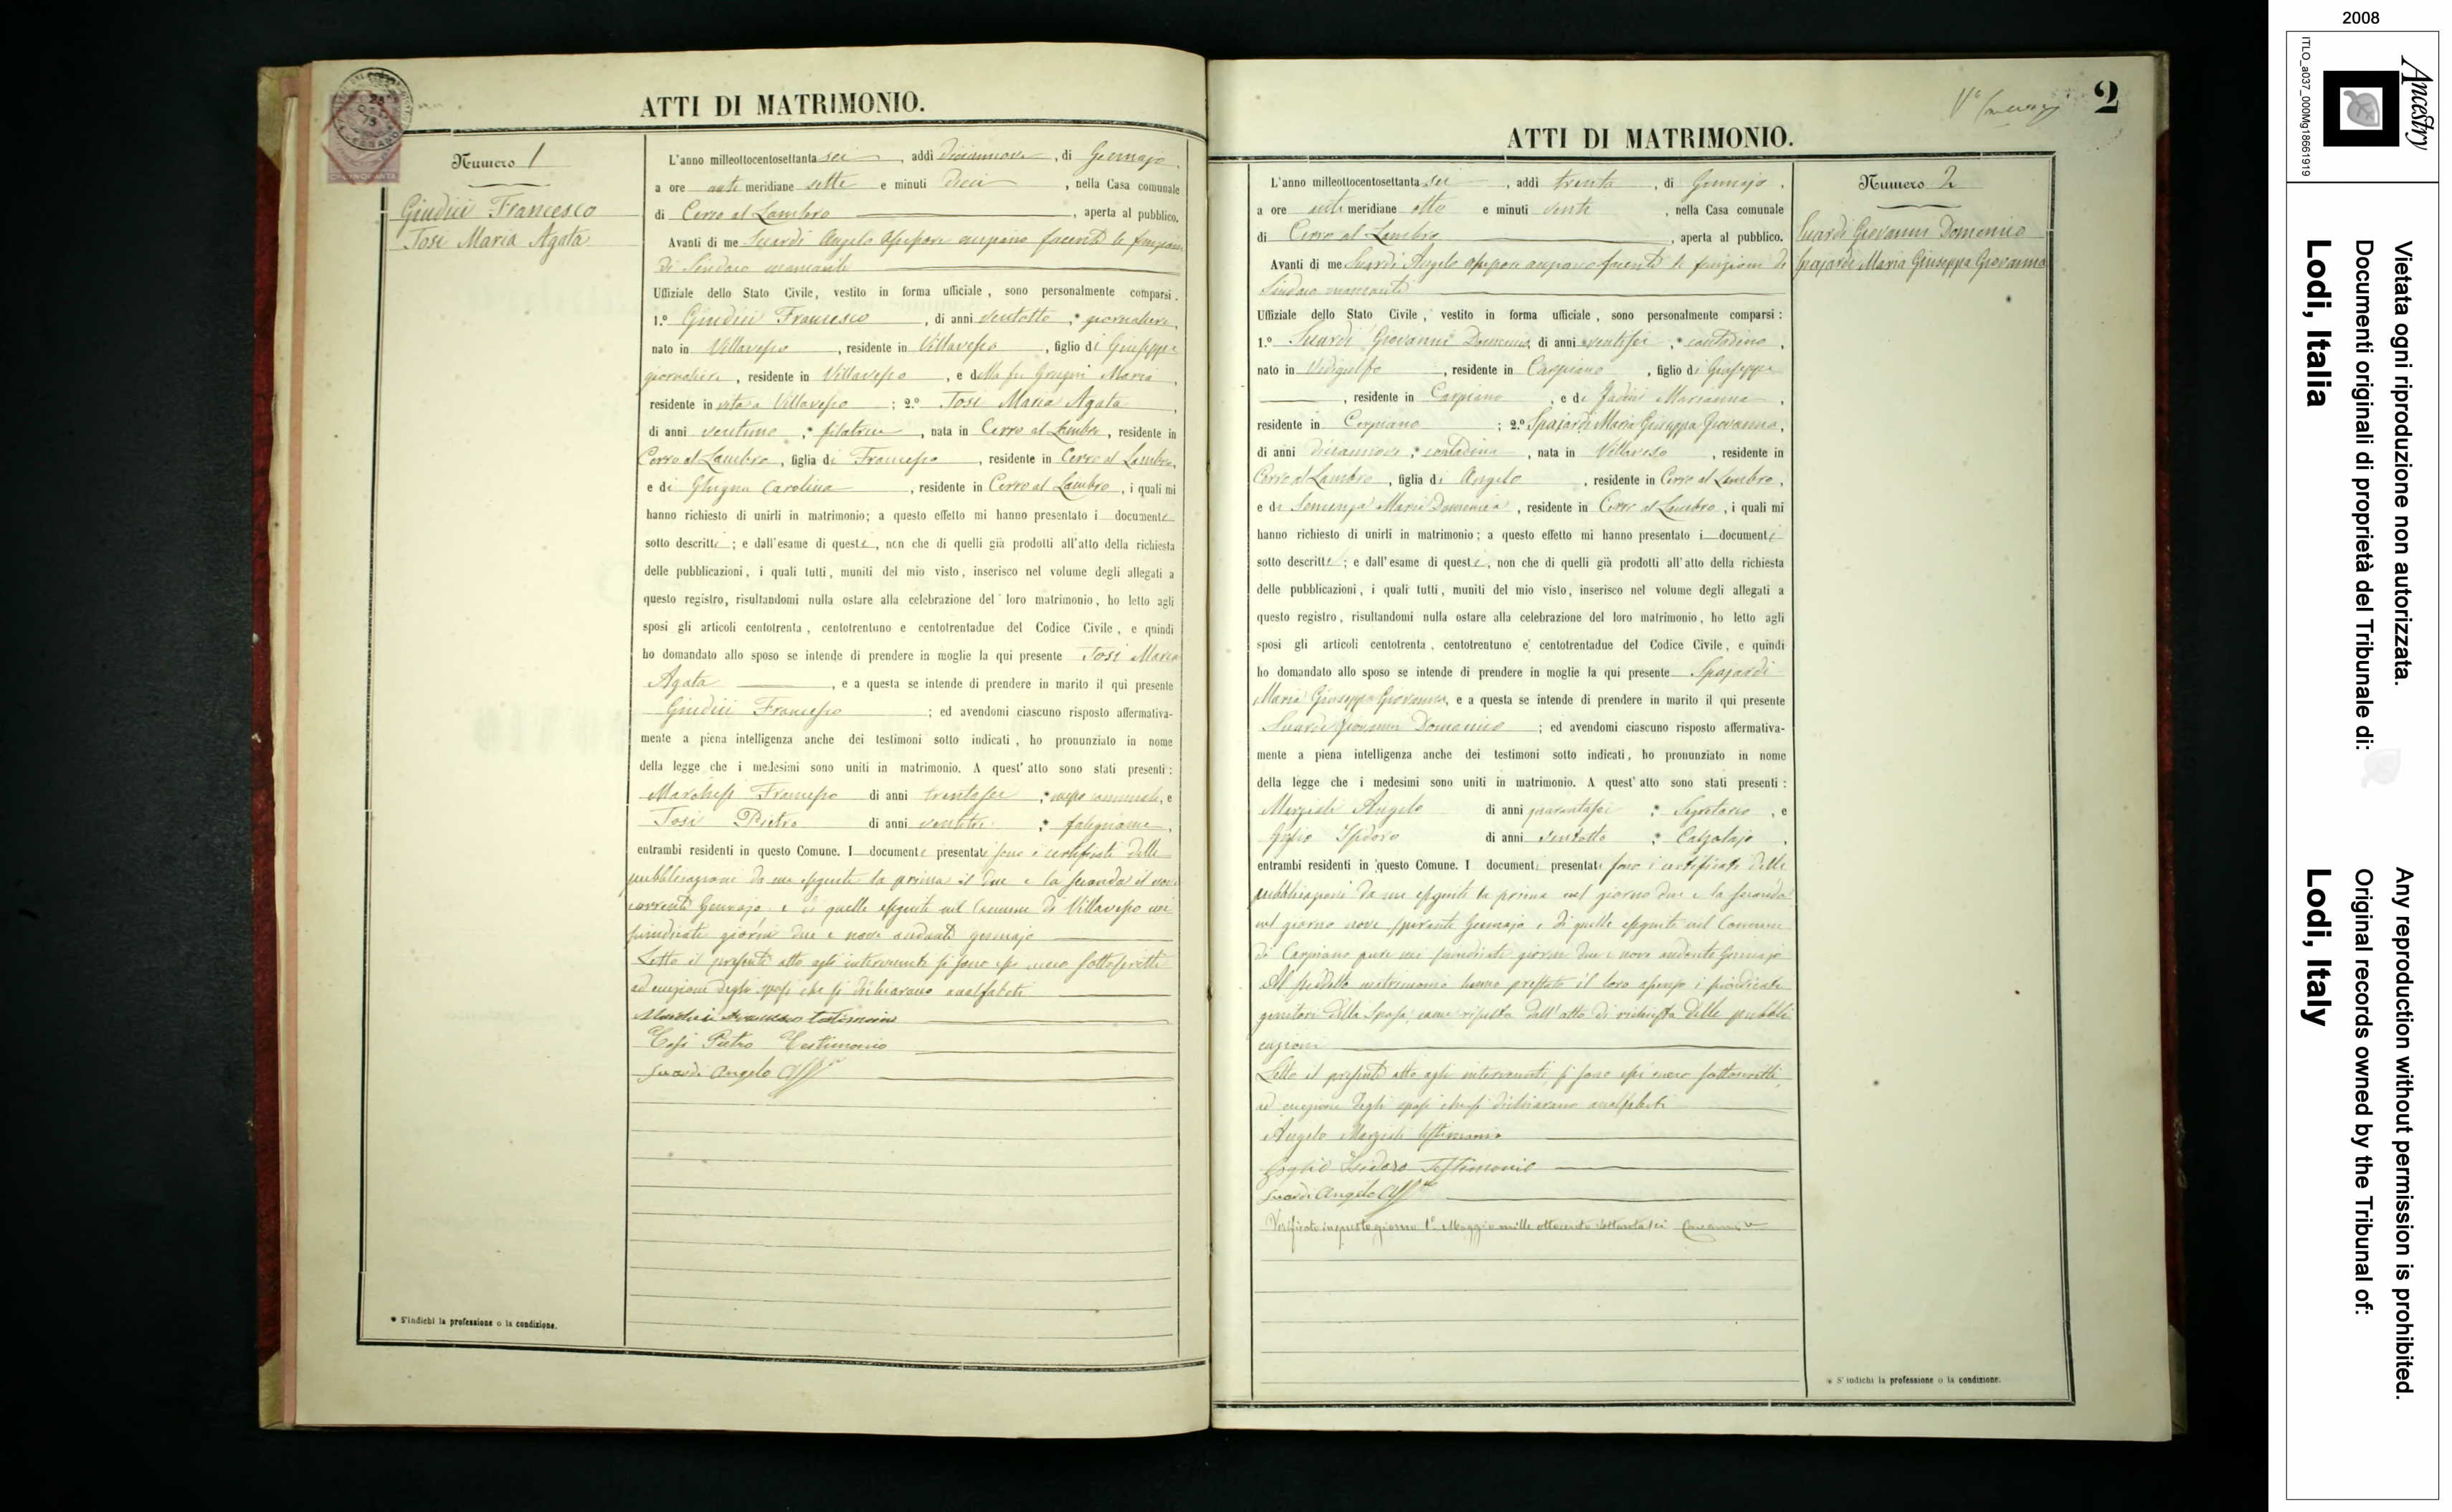 ATTI DI MATRIMONIO.
Numero 1
Giudici Francesco
Tosi Maria Agata
L'anno milleottocentosettanta sei, addi diciannove, di Gennajo,
a ore anti meridiane sette e minuti dieci, nella Casa comunale
di Cerro al Lambro, aperta al pubblico.
Avanti di me Suardi Angelo Assessore anziano facente le funzioni
di Sindaco mancante
Uffiziale dello Stato Civile, vestito in forma ufficiale, sono personalmente comparsi.
1.° Giudici Francesco, di anni ventotto, * giornaliere,
nato in Villavesco, residente in Villavesco, figlio di Giuseppe
giornaliere, residente in Villavesco, e della fu Maria,
residente in vita a Villavesco; 2.° Tosi Maria Agata,
di anni ventuno, * filatrice, nata in Cerro al Lambro, residente in
Cerro al Lambro, figlia di Francesco, residente in Cerro al Lambro,
e di Ghigna Carolina, residente in Cerro al Lambro, i quali mi
hanno richiesto di unirli in matrimonio; a questo effetto mi hanno presentato i documenti
sotto descritti; e dall'esame di questi, non che di quelli già prodotti all'atto della richiesta
delle pubblicazioni, i quali tutti, muniti del mio visto, inserisco nel volume degli allegati a
questo registro, risultandomi nulla ostare alla celebrazione del loro matrimonio, ho letto agli
sposi gli articoli centotrenta, centotrentuno e centotrentadue del Codice Civile, e quindi
ho domandato allo sposo se intende di prendere in moglie la qui presente Tosi Maria
Agata, e a questa se intende di prendere in marito il qui presente
Giudici Francesco; ed avendomi ciascuno risposto affermativa-
mente a piena intelligenza anche dei testimoni sotto indicati, ho pronunziato in nome
della legge che i medesimi sono uniti in matrimonio. A quest'atto sono stati presenti:
Marchesi Francesco di anni trentasei, * messo comunale, e
Tosi Pietro di anni ventitre, * falegname,
entrambi residenti in questo Comune. I documenti presentati sono i certificati delle
pubblicazioni da me eseguite la prima il due e la seconda il nove
corrente Gennajo e di quelle eseguite nel Comune di Villavesco nei
suindicati giorni due e nove andante gennajo
Letto il presente atto agli intervenuti si sono essi meco sottoscritti
ad eccezione degli sposi che si dichiarano analfabeti
Marchesi Francesco testimonio
Tosi Pietro Testimonio
Suardi Angelo Assre
* S'indichi la professione o la condizione.
2
ATTI DI MATRIMONIO.
Numero 2
Suardi Giovanni Domenico
Spajardi Maria Giuseppa Giovanna
L'anno milleottocentosettanta sei, addi trenta, di Gennajo,
a ore anti meridiane otto e minuti venti, nella Casa comunale
di Cerro al Lambro, aperta al pubblico.
Avanti di me Suardi Angelo assessore anziano facente le funzioni di
Sindaco mancante
Uffiziale dello Stato Civile, vestito in forma ufficiale, sono personalmente comparsi:
1.° Suardi Giovanni Domenico, di anni ventisei, * contadino,
nato in Vidigulfo, residente in Carpiano, figlio di Giuseppe
, residente in Carpiano, e di Marianna,
residente in Carpiano; 2.° Spajardi Maria Giuseppa Giovanna,
di anni diciannove, * contadina, nata in Villavesco, residente in
Cerro al Lambro, figlia di Angelo, residente in Cerro al Lambro,
e di Semenza Maria Domenica, residente in Cerro al Lambro, i quali mi
hanno richiesto di unirli in matrimonio; a questo effetto mi hanno presentato i documenti
sotto descritti; e dall'esame di questi, non che di quelli già prodotti all'atto della richiesta
delle pubblicazioni, i quali tutti, muniti del mio visto, inserisco nel volume degli allegati a
questo registro, risultandomi nulla ostare alla celebrazione del loro matrimonio, ho letto agli
sposi gli articoli centotrenta, centotrentuno e centotrentadue del Codice Civile, e quindi
ho domandato allo sposo se intende di prendere in moglie la qui presente Spajardi
Maria Giuseppa Giovanna, e a questa se intende di prendere in marito il qui presente
Suardi Giovanni Domenico; ed avendomi ciascuno risposto affermativa-
mente a piena intelligenza anche dei testimoni sotto indicati, ho pronunziato in nome
della legge che i medesimi sono uniti in matrimonio. A quest'atto sono stati presenti:
Angelo di anni quarantasei * Segretario, e
Isidoro di anni ventotto * Calzolajo,
entrambi residenti in questo Comune. I documenti presentati sono i certificati delle
pubblicazioni da me eseguite la prima nel giorno due e la seconda
nel giorno nove spirante Gennajo e di quelle eseguite nel Comune
di Carpiano pure nei suindicati giorni due e nove andante Gennajo
Al predetto matrimonio hanno prestato il loro assenso i suindicati
genitori della Sposa, come risulta dall'atto di richiesta delle pubbli
cazioni
Letto il presente atto agli intervenuti, si sono essi meco sottoscritti,
ad eccezione degli sposi che si dichiarano analfabeti
Angelo testimonio
Isidoro Testimonio
Suardi Angelo Assre
Verificato in questo giorno 1° Maggio mille ottocento settantasei
* S'indichi la professione o la condizione.
2008
Ancestry
ITLO_a037_000Mg18661919
Vietata ogni riproduzione non autorizzata.
Documenti originali di proprietà del Tribunale di:
Lodi, Italia
Any reproduction without permission is prohibited.
Original records owned by the Tribunal of:
Lodi, Italy